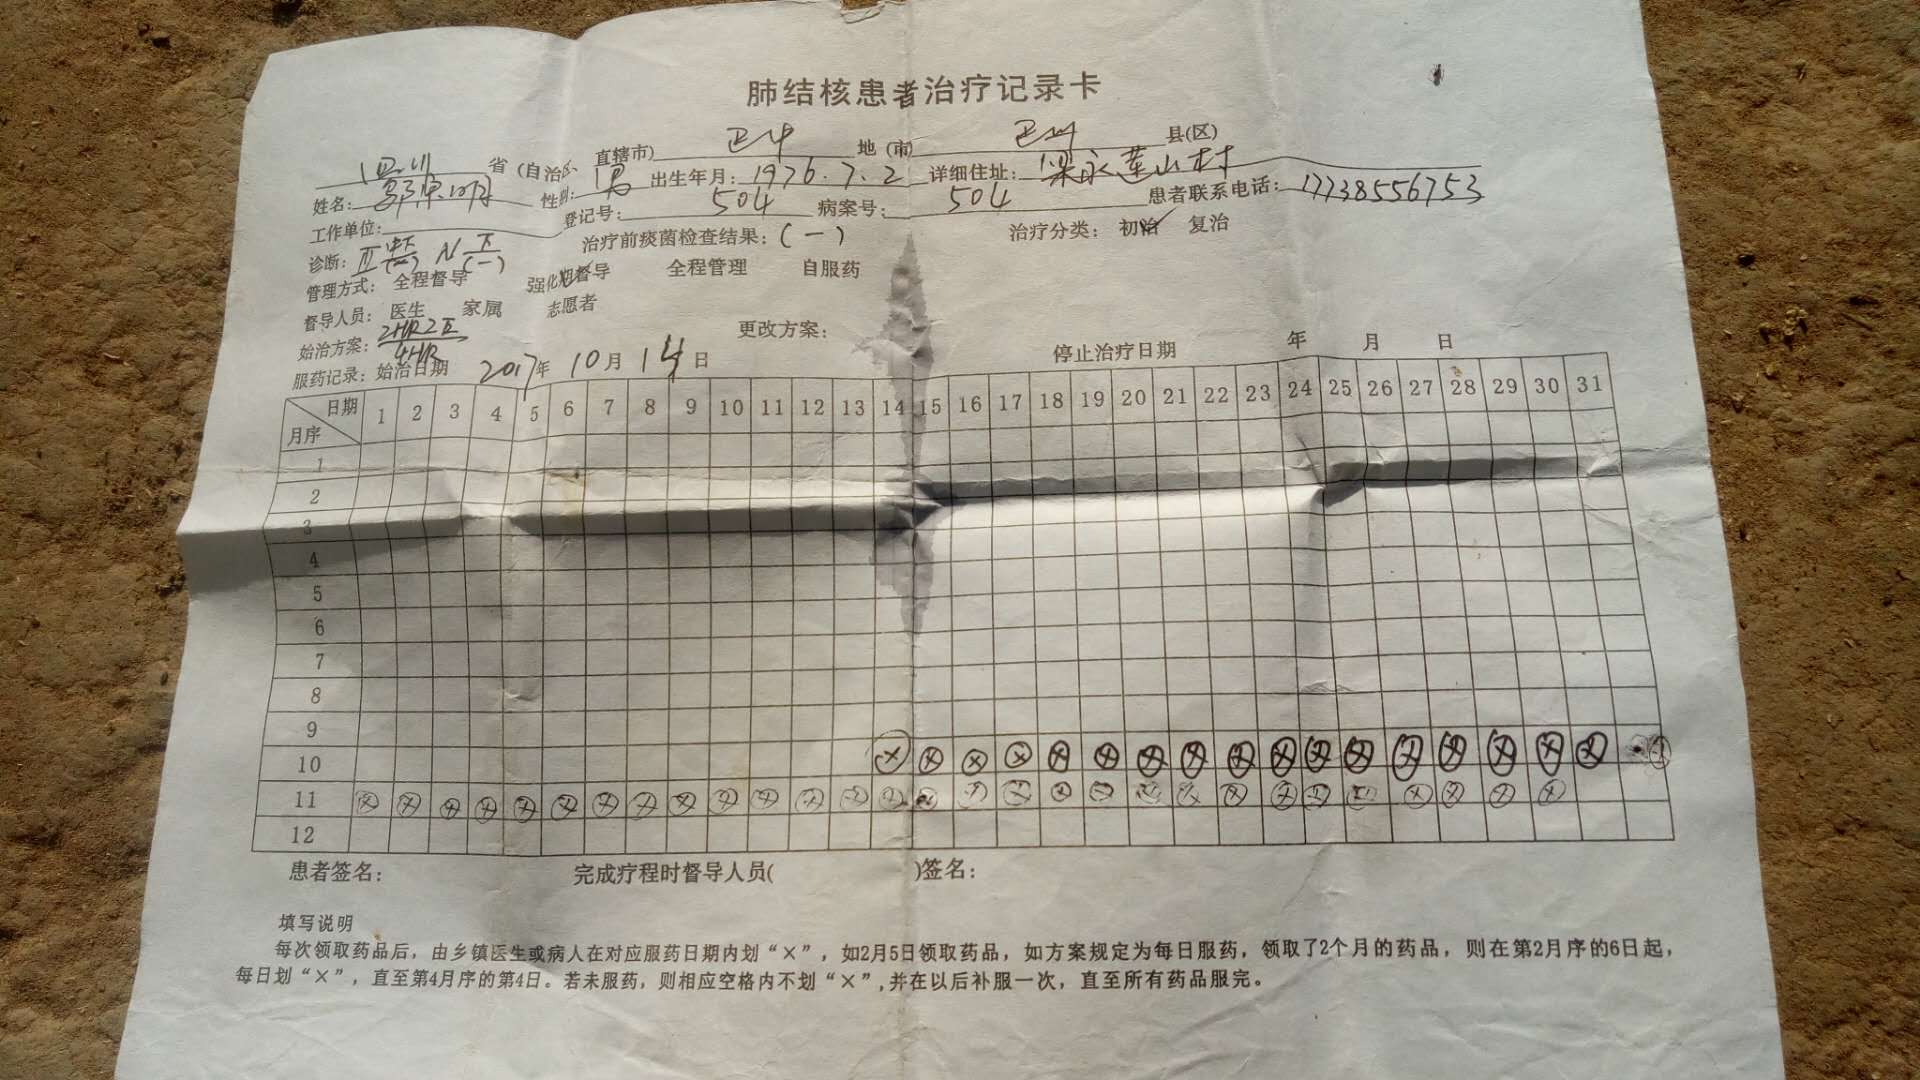 肺结核患者治疗记录卡
四川 省（自治区、直辖市） 巴中 地（市） 巴州 县(区)
姓名： 性别：男 出生年月：1976.7.2 详细住址： 永莲山村
工作单位： 登记号：504 病案号：504 患者联系电话：17738556753
诊断：III N 治疗前痰菌检查结果：(一) 治疗分类：初治✓ 复治
管理方式：全程督导 强化期督导 全程管理 自服药
督导人员：医生 家属 志愿者
始治方案： 4HR 更改方案：
服药记录：始治日期 2017年10月14日 停止治疗日期 年 月 日
日期 1 2 3 4 5 6 7 8 9 10 11 12 13 14 15 16 17 18 19 20 21 22 23 24 25 26 27 28 29 30 31
月序
1
2
3
4
5
6
7
8
9
10 ⊗ ⊗ ⊗ ⊗ ⊗ ⊗ ⊗ ⊗ ⊗ ⊗ ⊗ ⊗ ⊗ ⊗ ⊗ ⊗ ⊗
11 ⊗ ⊗ ⊗ ⊗ ⊗ ⊗ ⊗ ⊗ ⊗ ⊗ ⊗ ⊗ ⊗ ⊗ ⊗ ⊗ ⊗ ⊗ ⊗ ⊗ ⊗ ⊗ ⊗ ⊗ ⊗ ⊗ ⊗ ⊗ ⊗
12
患者签名： 完成疗程时督导人员( )签名：
填写说明
每次领取药品后，由乡镇医生或病人在对应服药日期内划“×”，如2月5日领取药品，如方案规定为每日服药，领取了2个月的药品，则在第2月序的6日起，
每日划“×”，直至第4月序的第4日。若未服药，则相应空格内不划“×”,并在以后补服一次，直至所有药品服完。